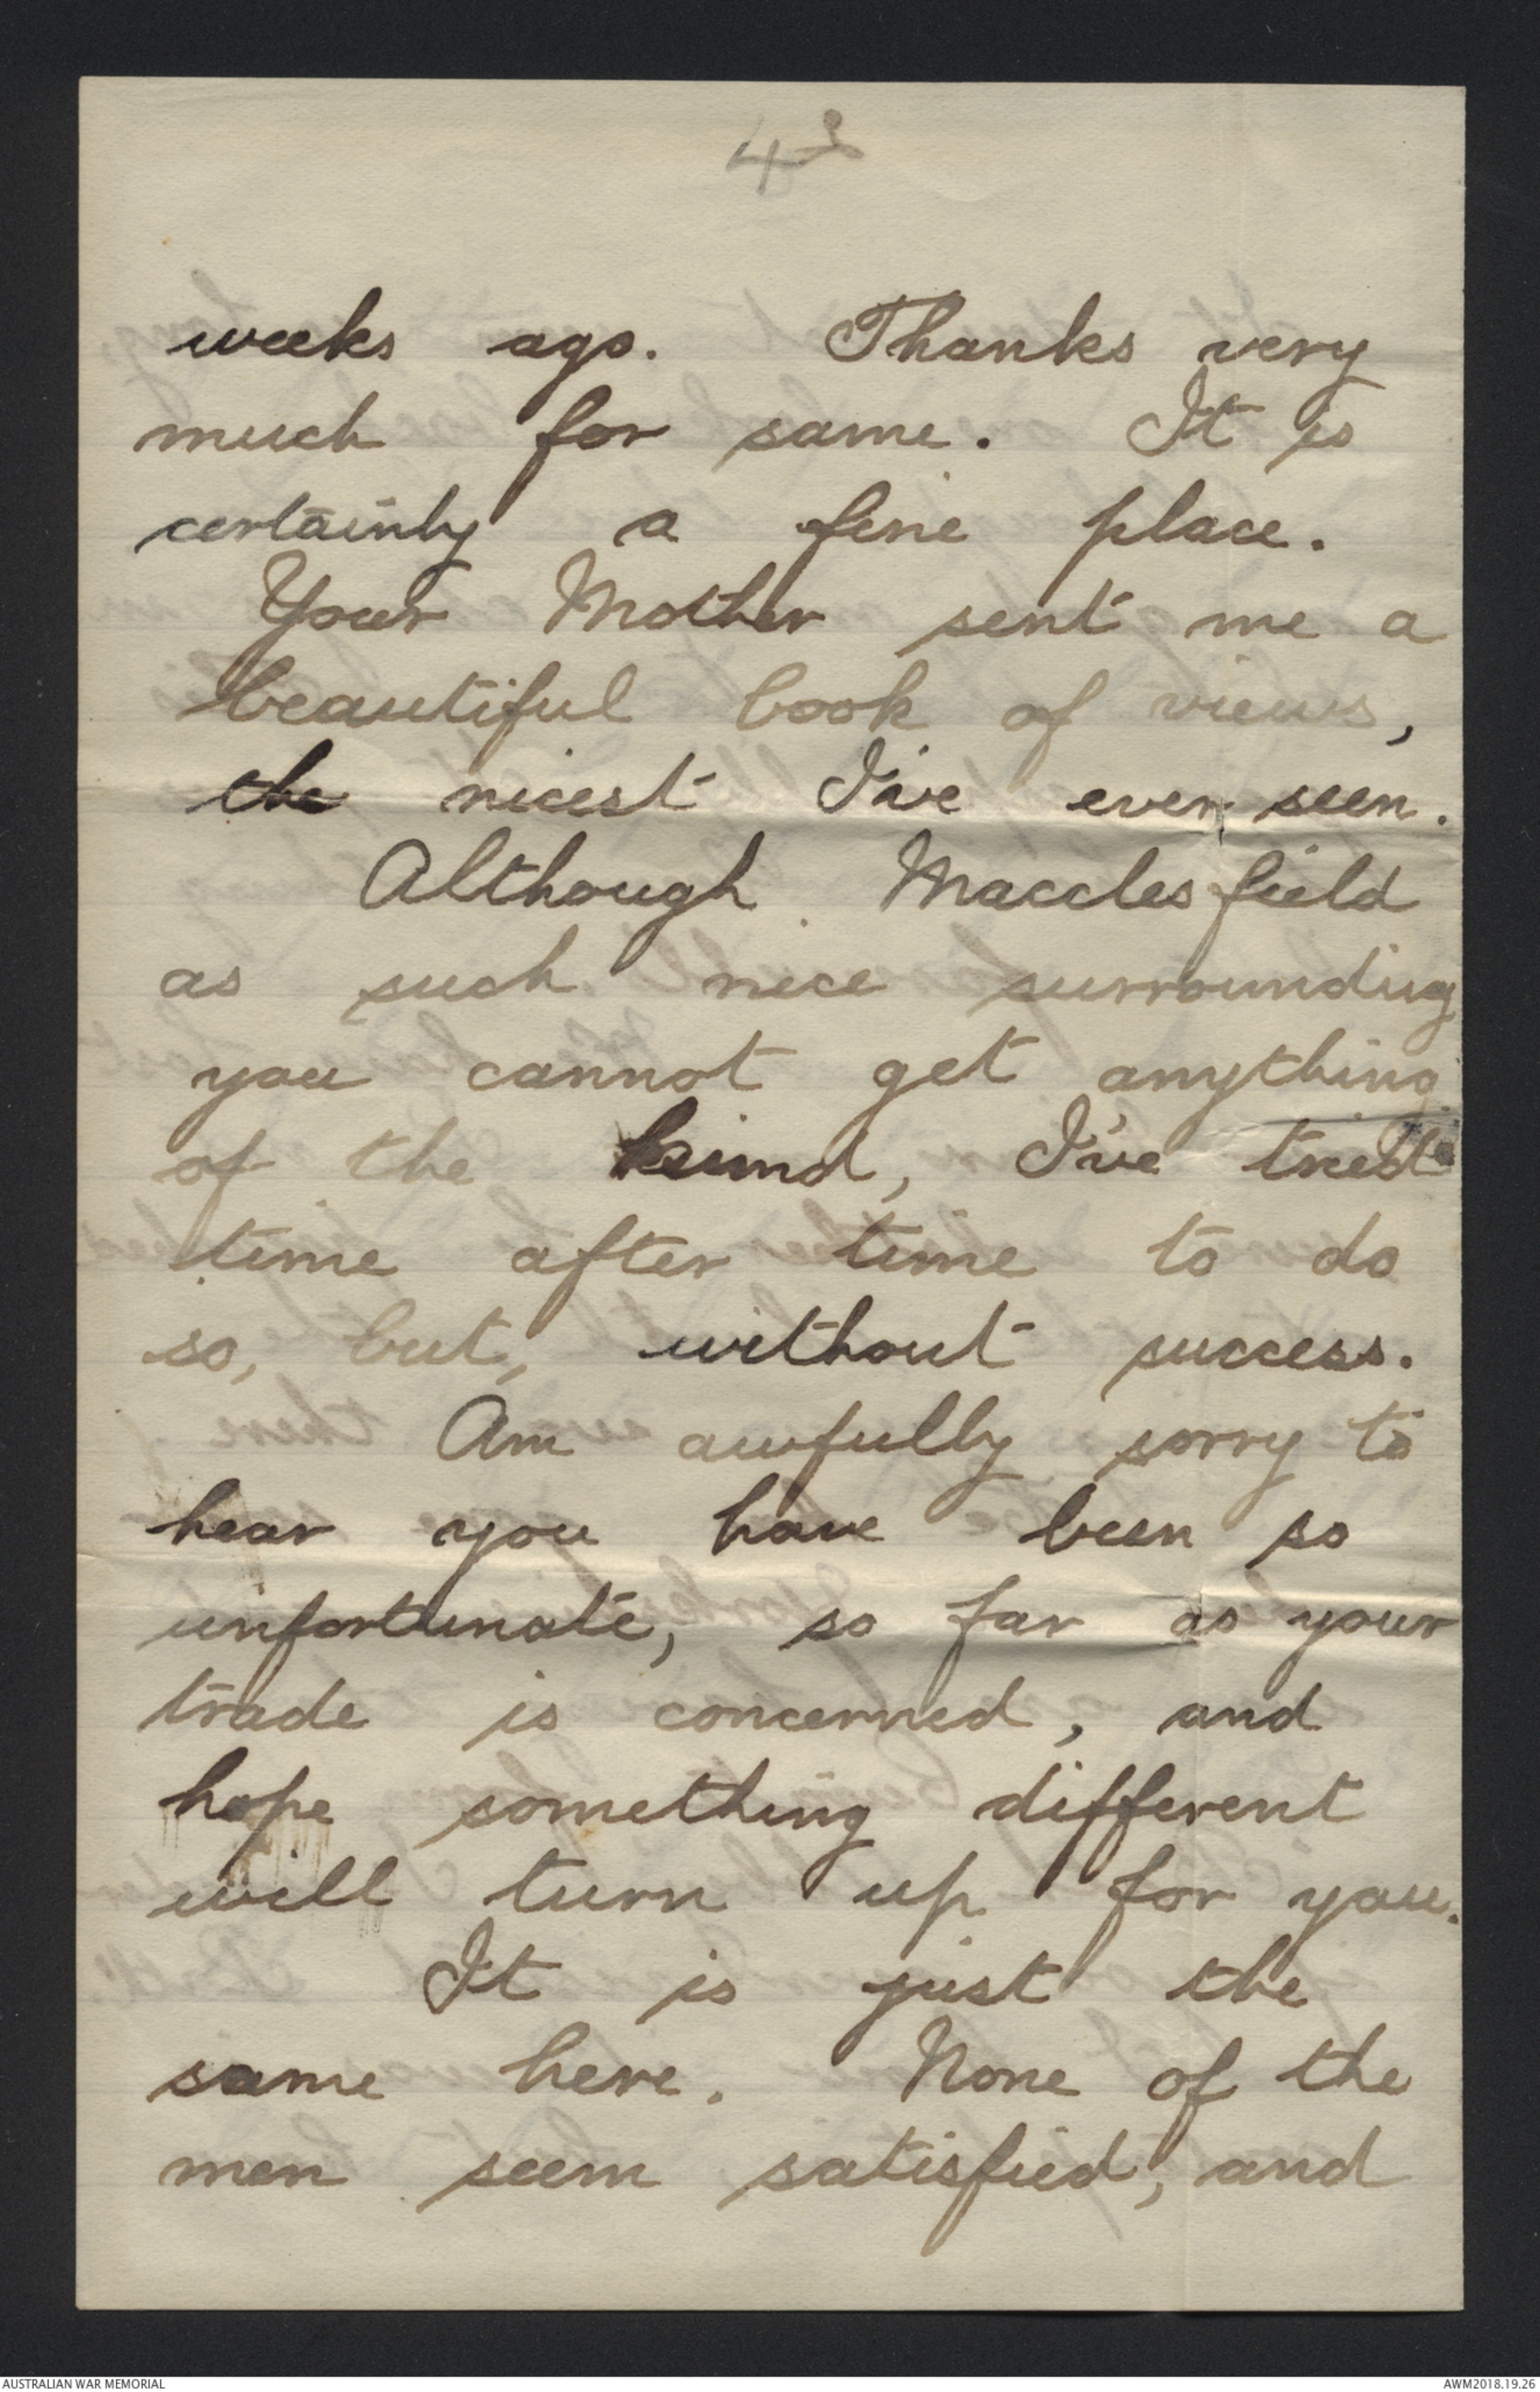 weeks ago. Thanks very
much for same. It is
certainly a fine place.
Your Mother sent me a
beautiful book of views,
the nicest I've ever seen.
Although Macclesfield
as such nice surrounding
you cannot get anything
of the kind, I've tried
time after time to do
so, but, without success.
Am awfully sorry to
hear you have been so
unfortunate, so far as your
trade is concerned, and
hope something different
will turn up for you.
It is just the
same here. None of the
men seem satisfied, and
AUSTRALIAN WAR MEMORIAL
AWM2018.19.26